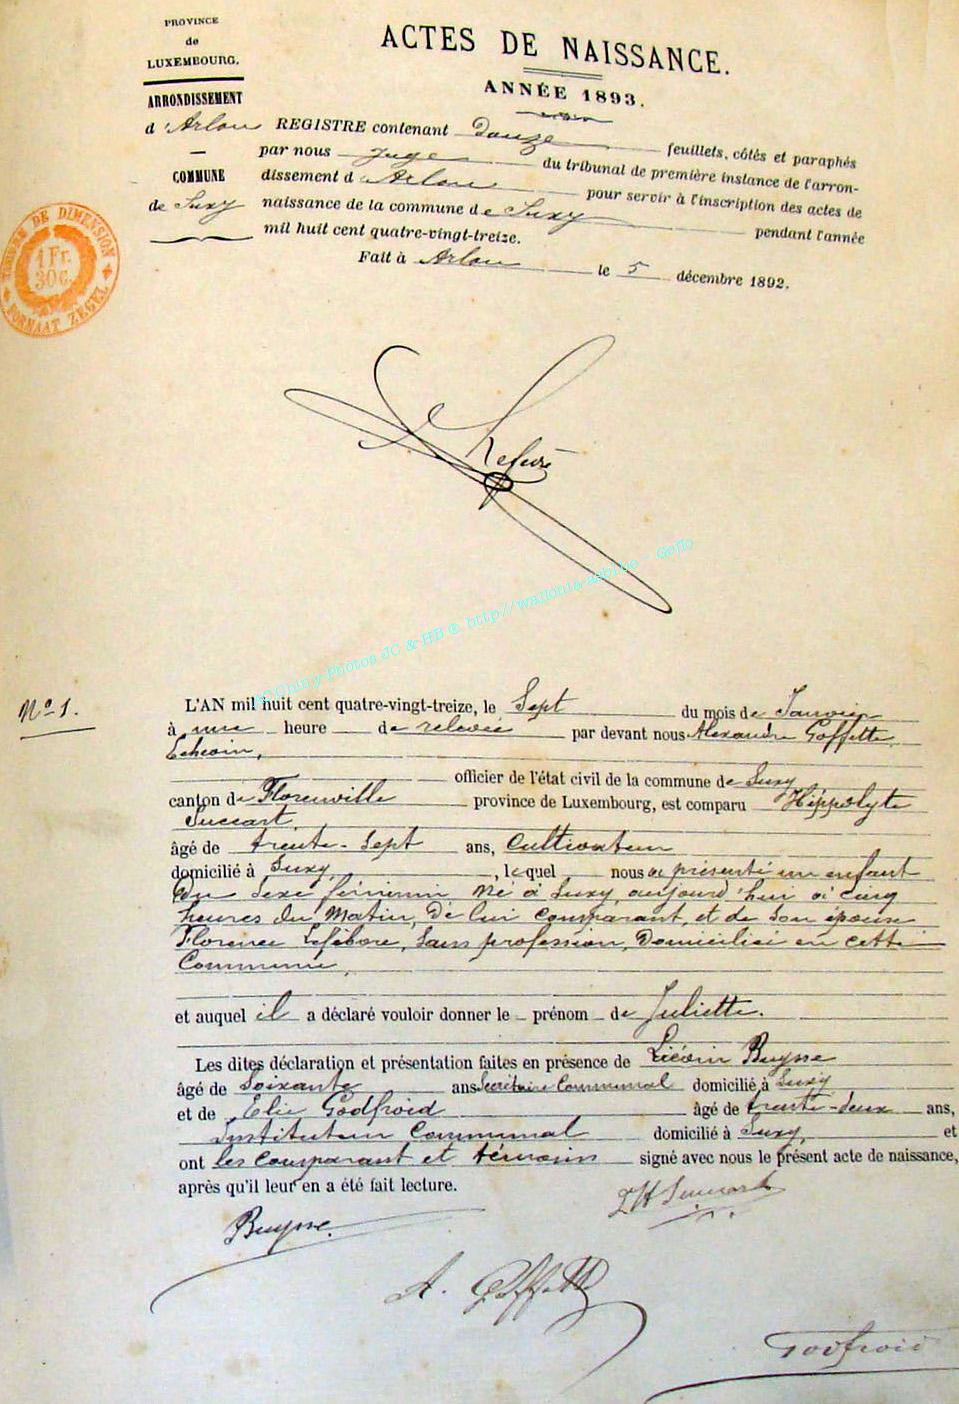 PROVINCE
de
LUXEMBOURG.
ARRONDISSEMENT
d'Arlon
COMMUNE
de Suxy
ACTES DE NAISSANCE.
ANNÉE 1893.
REGISTRE contenant Douze feuillets, côtés et paraphés
par nous juge du tribunal de première instance de l'arron-
dissement d'Arlon pour servir à l'inscription des actes de
naissance de la commune de Suxy pendant l'année
mil huit cent quatre-vingt-treize.
Fait à Arlon le 5 décembre 1892.
TIMBRE DE DIMENSION
1 Fr.
30 C.
FORMAAT ZEGEL
Photos JC & HB © http://wallonia-asbl.be - Goffo
No 1.
L'AN mil huit cent quatre-vingt-treize, le Sept du mois de Janvier
à une heure de relevée par devant nous Alexandre Goffette
Echevin,
officier de l'état civil de la commune de Suxy
canton de Florenville province de Luxembourg, est comparu Hippolyte
Succart,
âgé de trente-Sept ans, Cultivateur
domicilié à Suxy, lequel nous a présenté un enfant
du Sexe féminin né à Suxy, aujourd'hui à cinq
heures du matin, de lui comparant, et de son épouse
Florence Lefèbvre, Sans profession, domiciliée en cette
Commune,
et auquel il a déclaré vouloir donner le prénom de Juliette.
Les dites déclaration et présentation faites en présence de Buysse
âgé de Soixante ans Secrétaire Communal domicilié à Suxy
et de Elie Godfroid âgé de trente-deux ans,
Instituteur Communal domicilié à Suxy, et
ont les comparant et témoins signé avec nous le présent acte de naissance,
après qu'il leur en a été fait lecture.
Buysse
A. Goffette
Godfroid